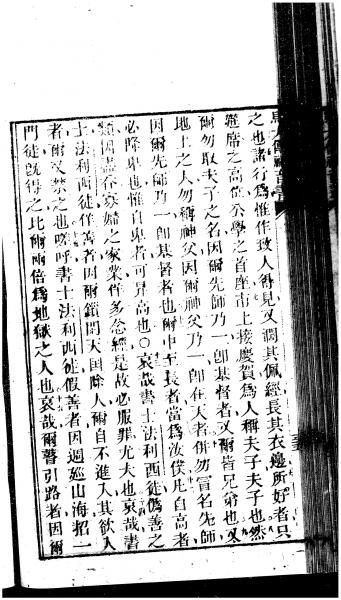 之也諸行爲惟作致人得見又濶其佩經長其衣邊所好者只
筵席之高位公學之首座市上接慶賀爲人稱夫子夫子也然
爾勿取夫子之名因爾先師乃一卽基督者又爾皆兄弟也又
地上之人勿稱神父因爾神父乃一卽在天者併勿冒名先師
因爾先師乃一卽基督者也爾中至長者當爲汝僕凡自高者
必降卑也惟自卑者可昇高也○哀哉書士法利西徒偽善之
類因盡吞寡婦之家業佯多念經是故必服罪尤夫也哀哉書
士法利西徒佯善者因爾鎖閉天國除人爾自不進入其欲入
者爾又禁之也嗟呼書士法利西徒假善者因週廵山海招一
門徒旣得之比爾兩倍爲地獄之人也哀哉爾瞽引路者因爾